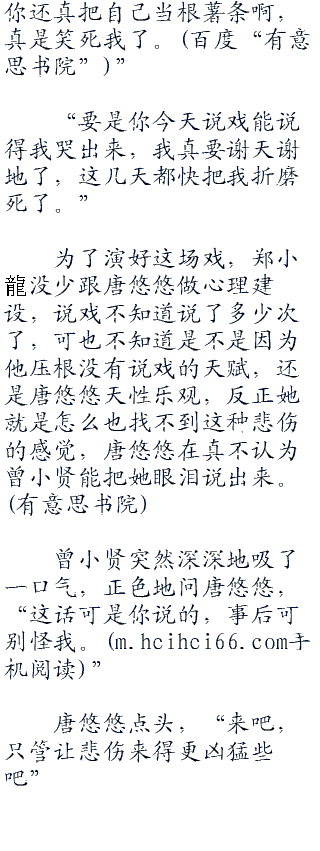 你还真把自己当根薯条啊，
真是笑死我了。(百度“有意
思书院”)”
“要是你今天说戏能说
得我哭出来，我真要谢天谢
地了，这几天都快把我折磨
死了。”
为了演好这场戏，郑小
龍没少跟唐悠悠做心理建
设，说戏不知道说了多少次
了，可也不知道是不是因为
他压根没有说戏的天赋，还
是唐悠悠天性乐观，反正她
就是怎么也找不到这种悲伤
的感觉，唐悠悠在真不认为
曾小贤能把她眼泪说出来。
(有意思书院)
曾小贤突然深深地吸了
一口气，正色地问唐悠悠，
“这话可是你说的，事后可
别怪我。(m.hcihci66.com手
机阅读)”
唐悠悠点头，“来吧，
只管让悲伤来得更凶猛些
吧”